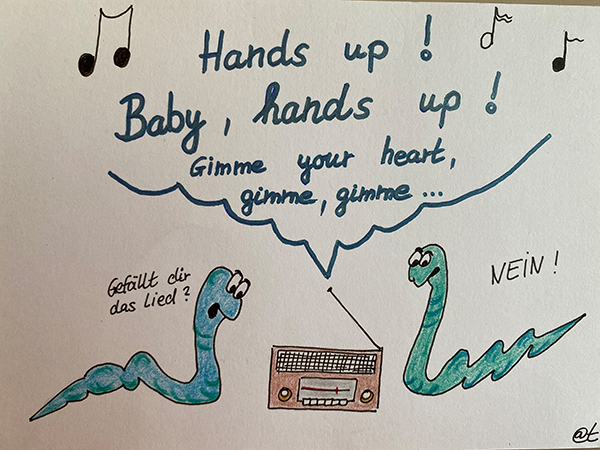 Hands up!
Baby, hands up!
Gimme your heart,
gimme, gimme...
Gefällt dir
das Lied?
NEIN!
@t